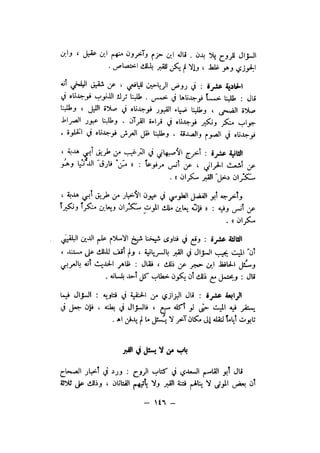 السؤال للروح بلا بدن . قاله ابن حزم وآخرون منهم ابن عقيل ، وابن
الجوزي وهو غلط ، وإلا لم يكن للقبر بذلك اختصاص .
الحادية عشرة : في روض الرياحين لليافعي ، عن شقيق البلخي أنه
قال : طلبنا خمساً فوجدناها في خمس . طلبنا ترك الذنوب فوجدناه في
صلاة الضحى ، وطلبنا ضياء القبور فوجدناه في صلاة الليل ، وطلبنا
جواب منكر ونكير فوجدناه في قراءة القرآن . وطلبنا عبور الصراط
فوجدناه في الصوم والصدقة . وطلبنا ظل العرش فوجدناه في الخلوة .
الثانية عشرة : أخرج الأصبهاني في الترغيب من طريق أبي هدبة ،
عن أشعث الحراني ، عن أنس مرفوعاً : « مَنْ فارقَ الدُّنيا وهُو
سَكْران دخلَ القبر سكران » .
وأخرجه أبو الفضل الطوسي في عيون الأخبار من طريق أبي هدبة ،
عن أنس وفيه : « فإنّه يعاين ملك الموت سَكْران ويعاين منكراً ونكيراً
سكران » .
الثالثة عشرة : وقع في فتاوى شيخنا شيخ الاسلام علم الدين البلقيني
أنّ الميت يجيب السؤال في القبر بالسريانية ، ولم أقف لذلك على مستند ،
وسئل الحافظ ابن حجر عن ذلك ، فقال : ظاهر الحديث أنه بالعربي
قال : ويحتمل مع ذلك أن يكون خطاب كل أحد بلسانه .
الرابعة عشرة : قال البزازي من الحنفية في فتاويه : السؤال فيما
يستقر فيه الميت حتى لو أكله سبع ، فالسؤال في بطنه ، فإن جعل في
تابوت أياماً لنقله إلى مكان آخر لا يُسئل ما لم يدفن اه .
باب من لا يسئل في القبر
قال أبو القاسم السعدي في كتاب الروح : ورد في أخبار الصحاح
أن بعض الموتى لا ينالهم فتنة القبر ولا يأتيهم الفتانان ، وذلك على ثلاثة
– ١٤٦ –